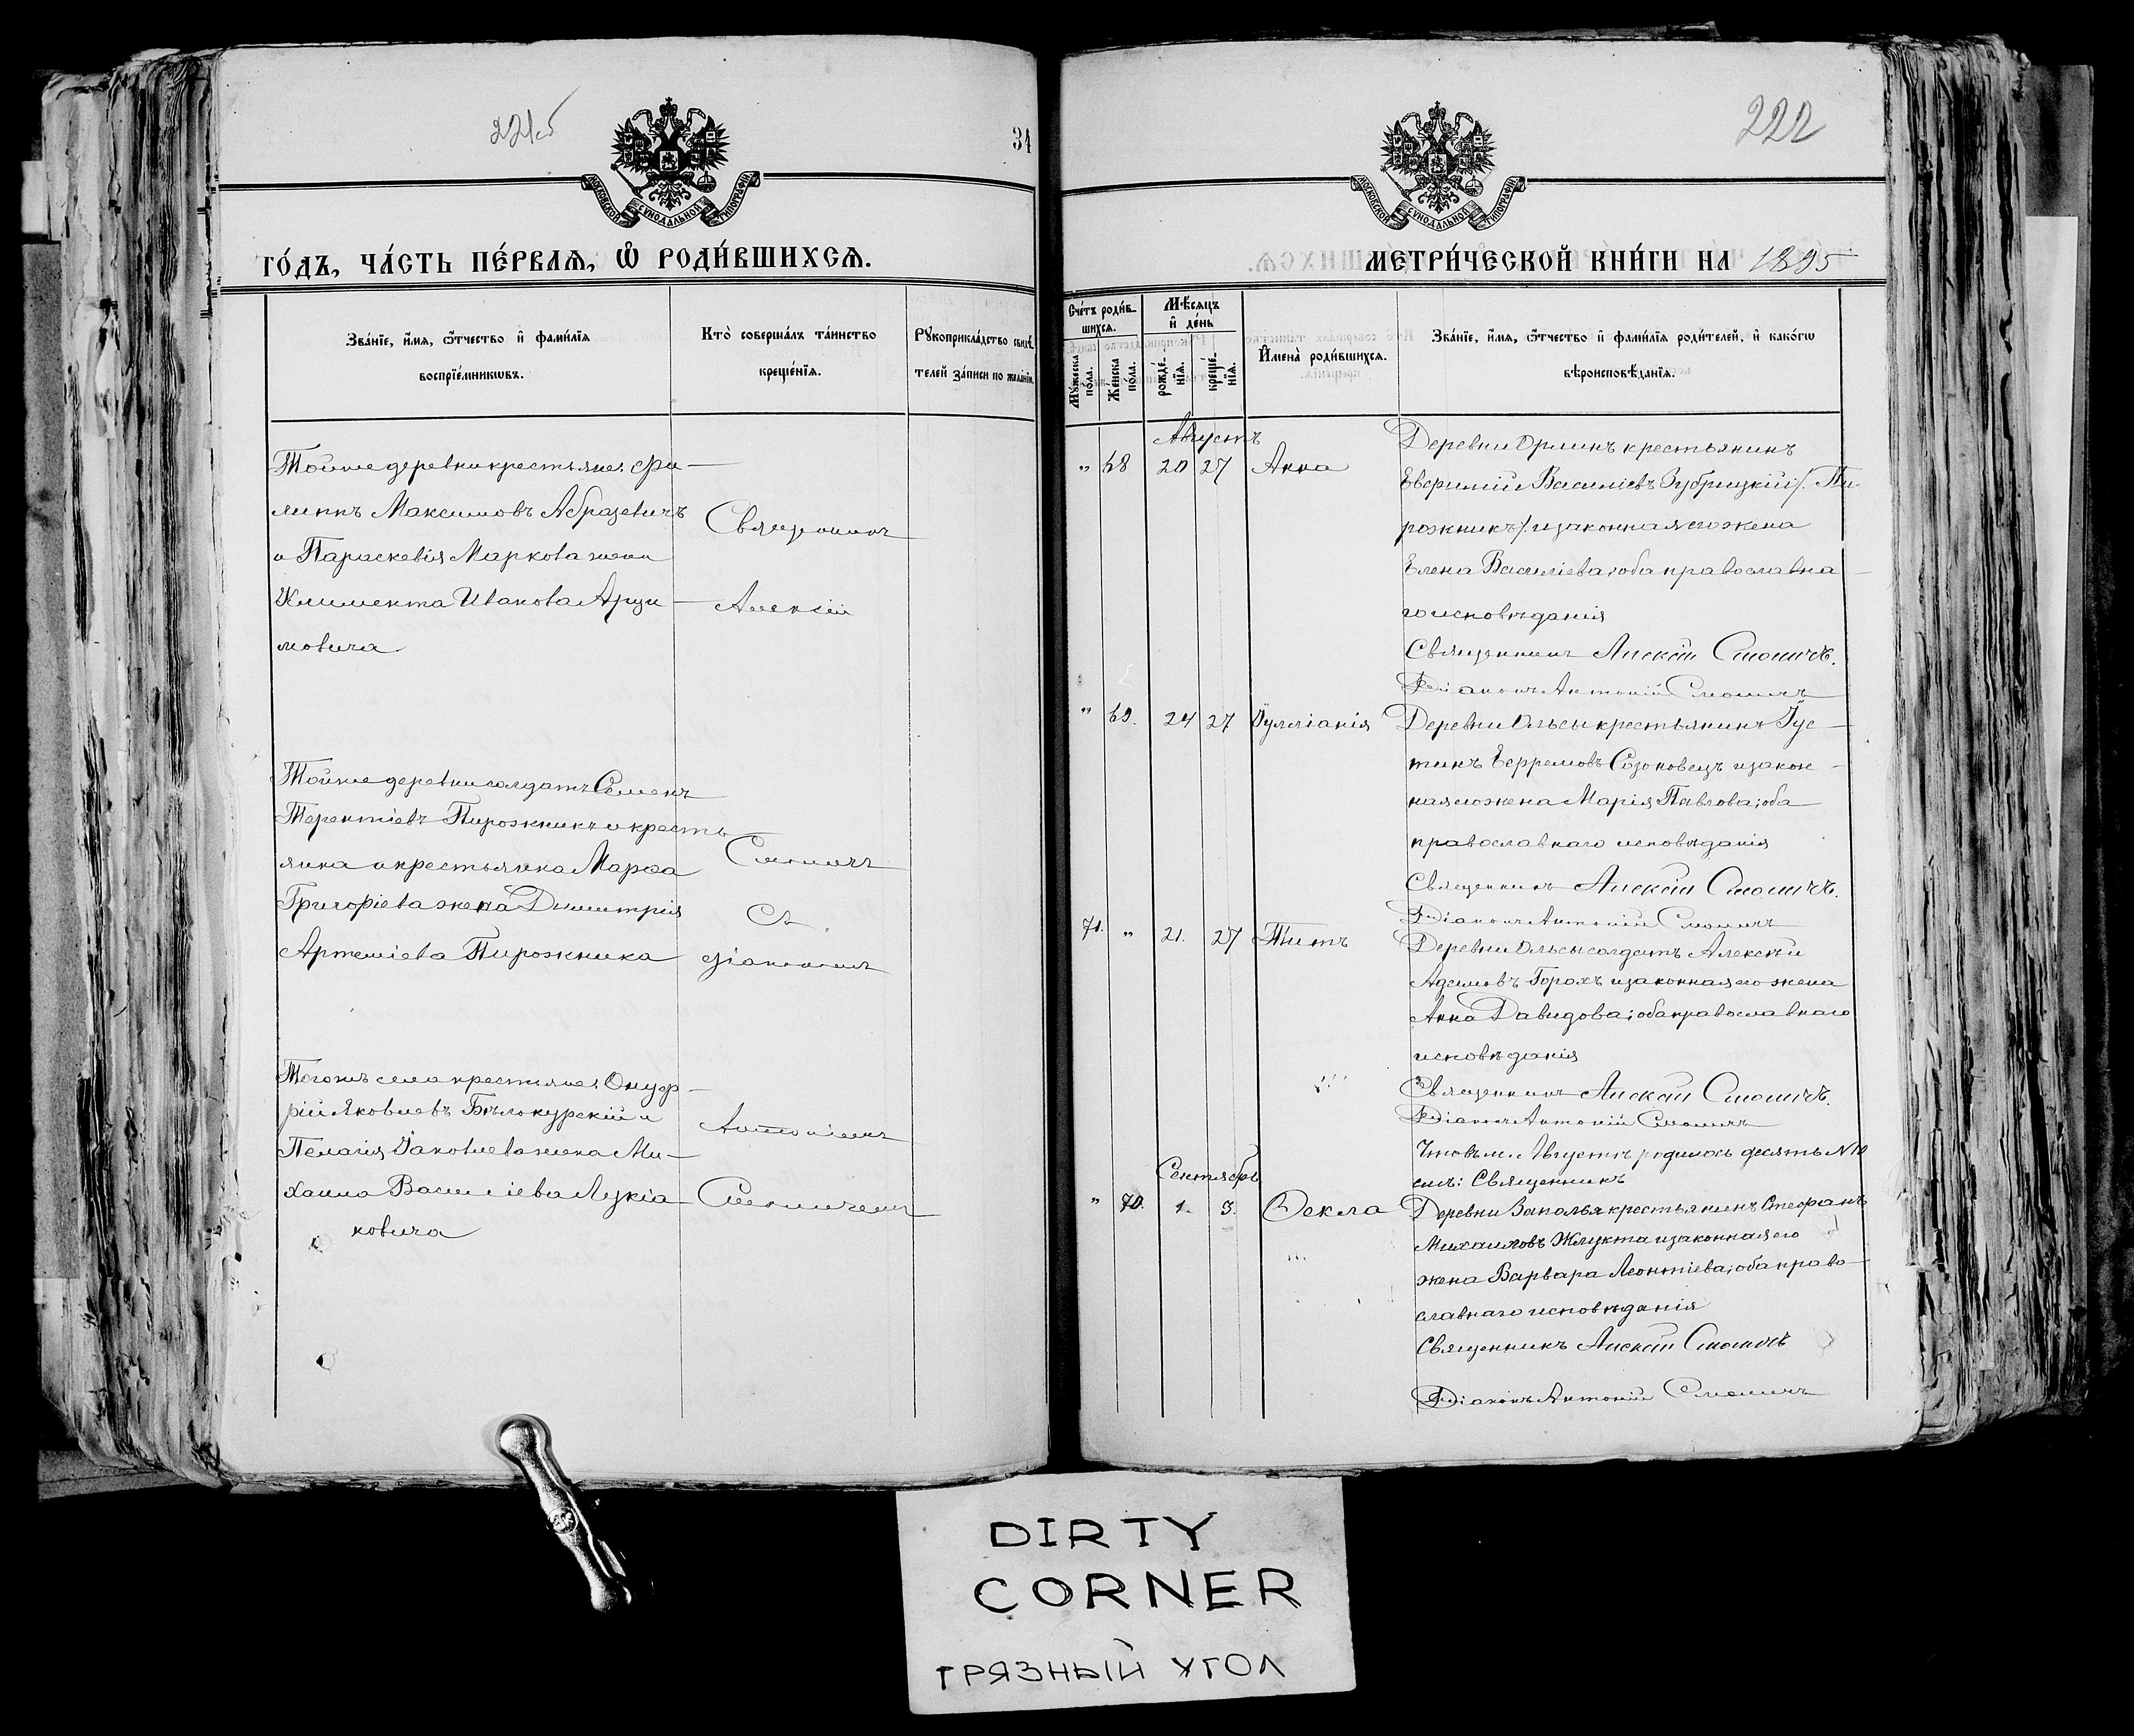 221об
34
МОСКОВСКОЙ СѴНОДАЛЬНОЙ ТИПОГРАФІИ
го́дъ, ча́сть пе́рваѧ, ѡ҆ роди́вшихсѧ.
Зва́нїе, и҆́мѧ, ѻ҆́тчество и҆ фами́лїѧ
воспрїе́мникѡвъ.
Кто̀ соверша́лъ та́инство
креще́нїѧ.
Рꙋкоприкла́дство свидѣ́-
телей за́писи по жела́нїю.
Тойже деревни крестьяне: Фи-
липпъ Максимовъ Абразевичъ
и Параскевія Маркова жена
Климента Иванова Арци-
мовича
Священникъ
Алексій
Тойже деревни солдатъ Семенъ
Терентіевъ Пирожникъ и кресть
янка и крестьянка Марѳа
Григоріева жена Димитрія
Артеміева Пирожника
Смоличъ
Съ
діакономъ
Тогожъ села крестьяне: Онуф-
рій Яковлевъ Бѣлокурскій и
Пелагія Іаковлева жена Ми-
хаила Василіева Лукіа-
новича
Антоніемъ
Смоличемъ
222
МОСКОВСКОЙ СѴНОДАЛЬНОЙ ТИПОГРАФІИ
метри́ческой кни́ги на 1895
Сче́тъ роди́в-
шихсѧ.
Мꙋ́жеска по́ла.
Же́нска по́ла.
Мѣ́сѧцъ
и҆ де́нь
рожде́-нїѧ.
креще́-нїѧ.
И҆мена̀ роди́вшихсѧ.
Зва́нїе, и҆́мѧ, ѻ҆́тчество и҆ фами́лїѧ роди́телей, и҆ како́гѡ
вѣроисповѣ́данїѧ.
Августъ
" 68 20 27 Анна
Деревни Орлинъ крестьянинъ
Евфимій Василіевъ Зубрицкій /: Пи-
рожникъ :/ и законная его жена
Елена Василіева; оба православна-
го исповѣданія
Священникъ Алексій Смоличъ.
Діаконъ Антоній Смоличъ
" 69. 24 27 Іулліанія
Деревни Ольсы крестьянинъ Іус-
тинъ Ефремовъ Созоновецъ и закон-
ная его жена Марія Павлова; оба
православнаго исповѣданія
Священникъ Алексій Смоличъ.
Діаконъ Антоній Смоличъ
71. " 21. 27 Титъ
Деревни Ольсы солдатъ Алексѣй
Адамовъ Горохъ и законная его жена
Анна Давидова; оба православнаго
исповѣданія
Священникъ Алексій Смоличъ.
Діаконъ Антоній Смоличъ
Что въ м. Августѣ родилось десять № 10
Священникъ
Сентябрь
" 70. 1. 3. Ѳекла
Деревни Заполья крестьянинъ Стефанъ
Михаиловъ Жлукта и законная его
жена Варвара Леонтіева; оба право-
славнаго исповѣданія
Священникъ Алексій Смоличъ
Діаконъ Антоній Смоличъ
DIRTY
CORNER
ГРЯЗНЫЙ УГОЛ